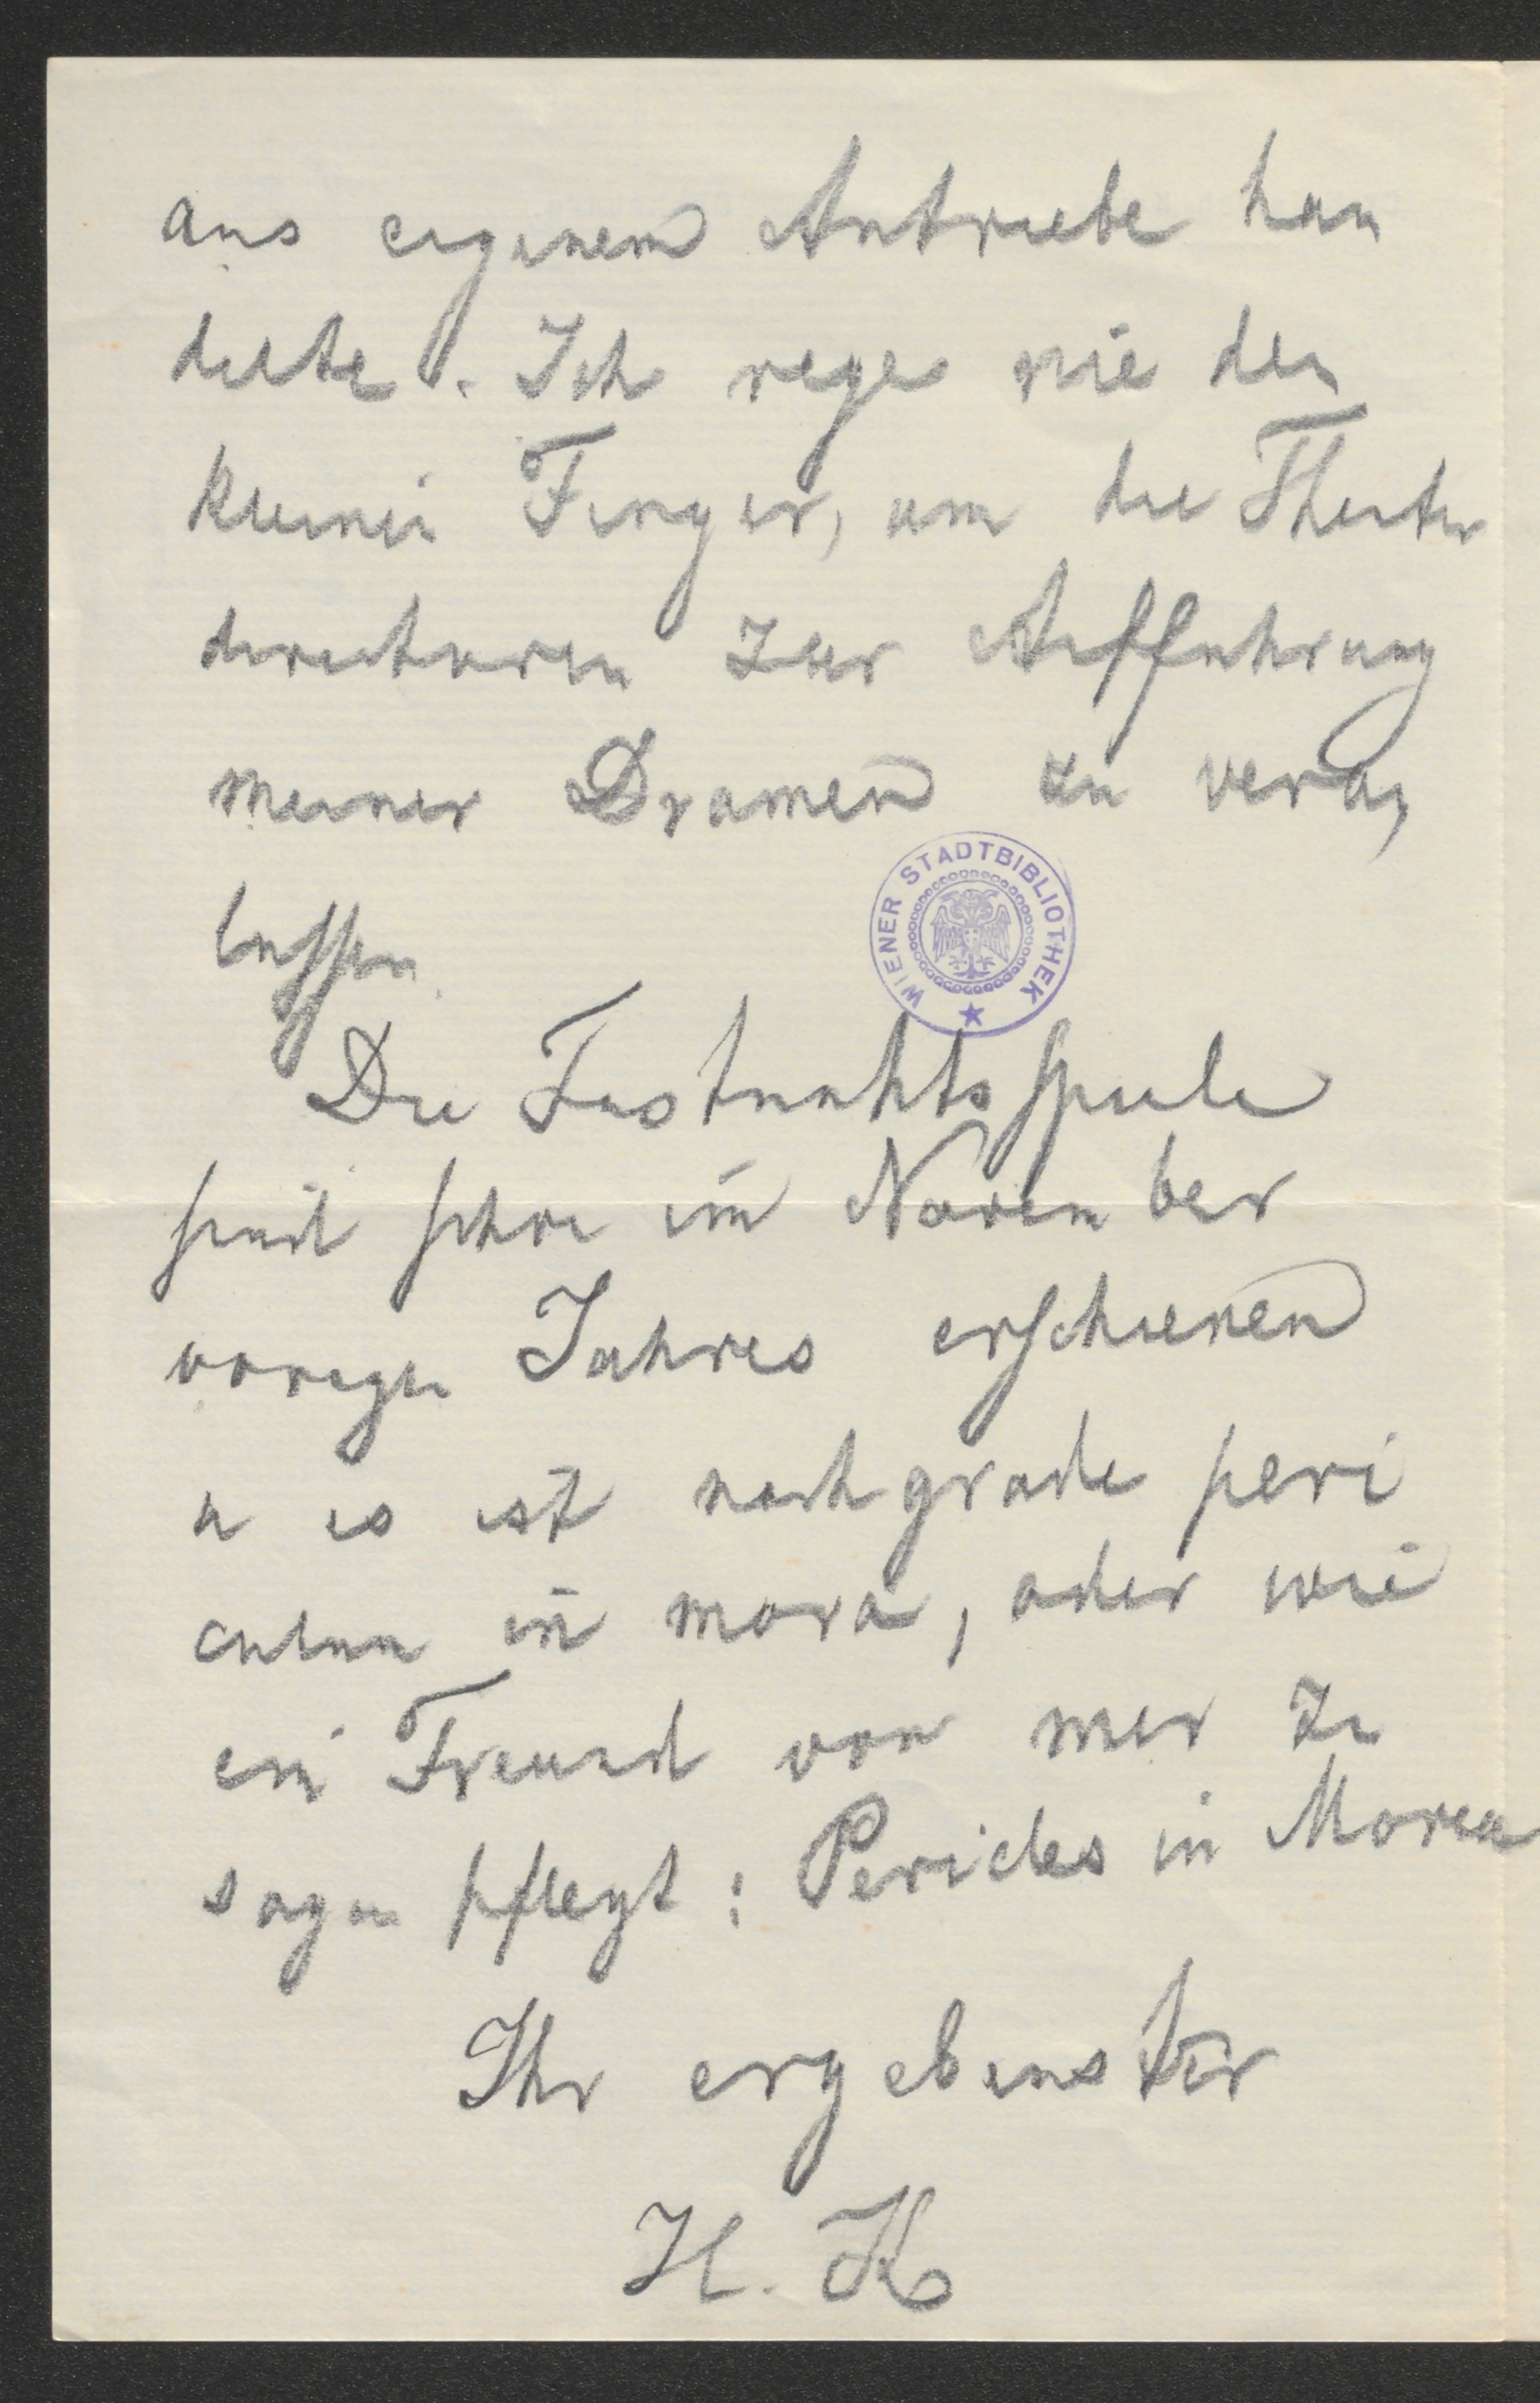 aus eigenem Antriebe han
delte. Ich rege nie den
kleinen Finger, um die Theater
directoren zur Aufführung
meiner Dramen zu veran
lassen.
WIENER STADTBIBLIOTHEK
Die Fastnachtsspiele
sind schon im November
vorigen Jahres erschienen
u es ist nachgrade peri
culum in mora, oder wie
ein Freund von mir zu
sagen pflegt: Pericles in Morea
Ihr ergebenster
H. K